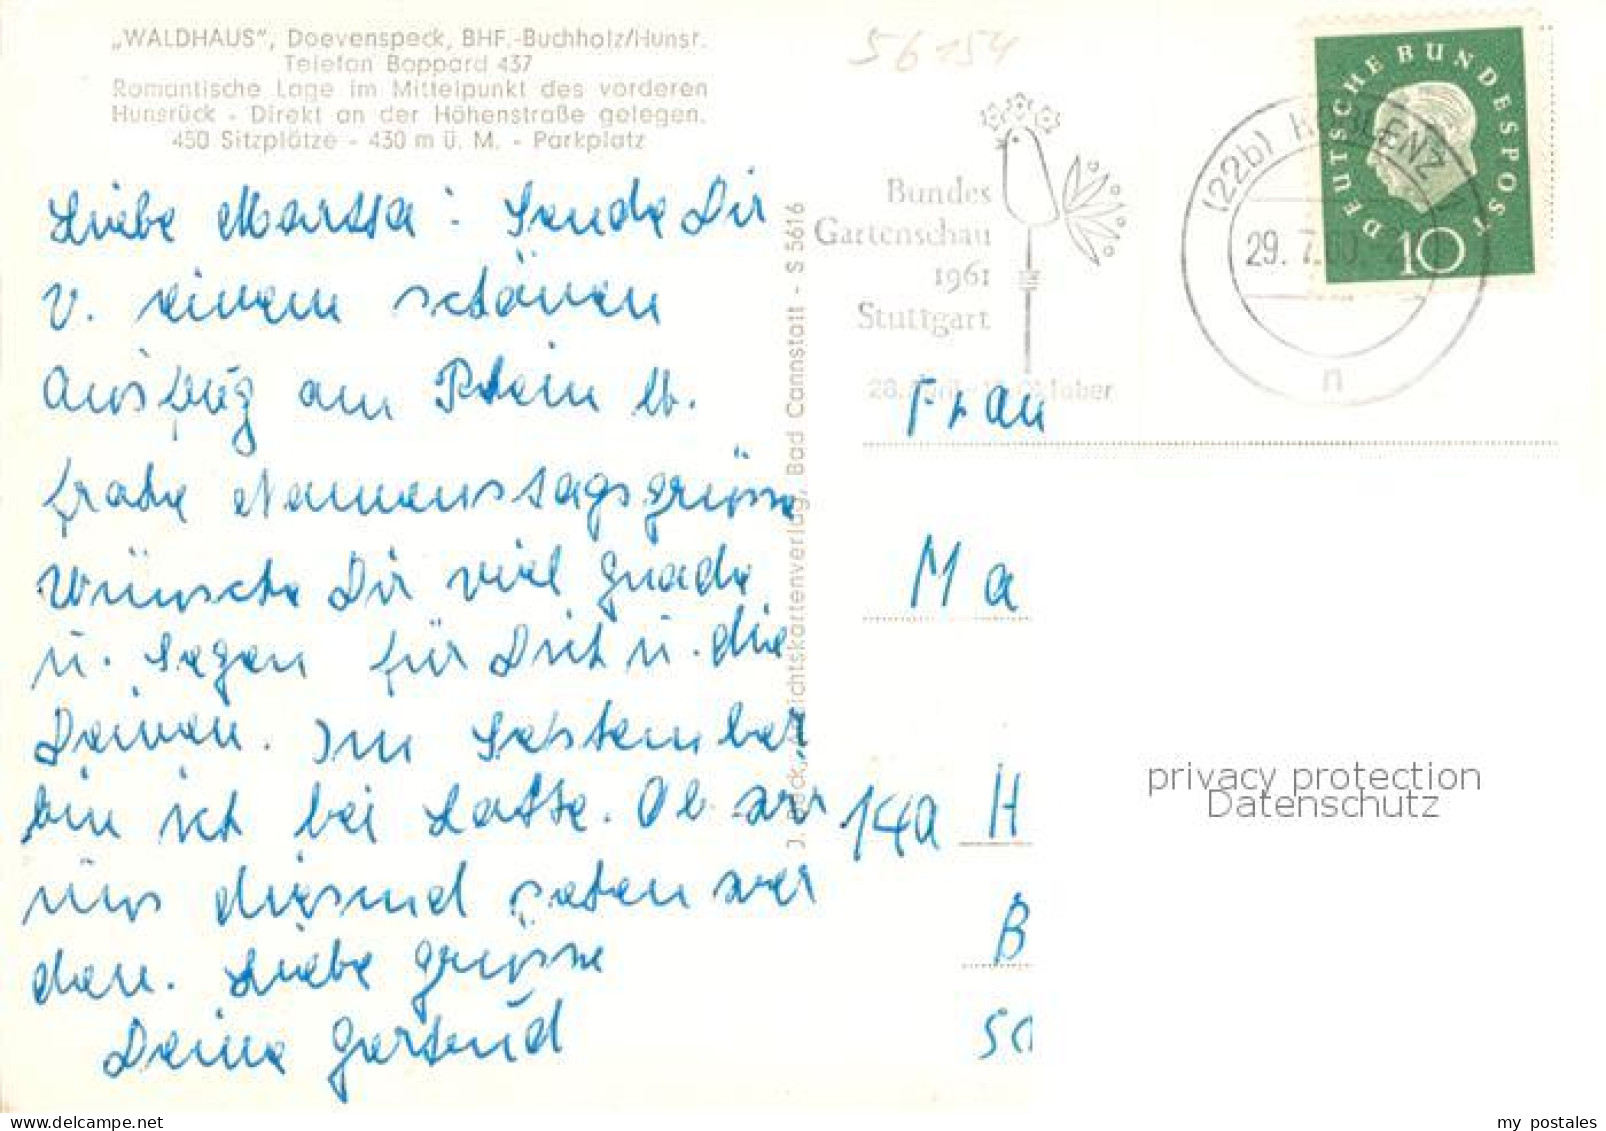 „WALDHAUS", Doevenspeck, BHF.-Buchholz/Hunsr.
Telefon Boppard 437
Romantische Lage im Mittelpunkt des vorderen
Hunsrück - Direkt an der Höhenstraße gelegen.
450 Sitzplätze - 430 m ü. M. - Parkplatz
Liebe Martha! Sende Dir
v. einem schönen
Ausflug am Rhein lb.
frohe Namenstagsgrüsse
Wünsche Dir viel Gnade
u. Segen für Dich u. die
Deinen. Im September
bin ich bei Lotte. Ob wir
uns diesmal sehen wer
den. Liebe Grüsse
Deine Gertrud
J. Beck, Ansichtskartenverlag, Bad Cannstatt - S 5616
56154
Bundes
Gartenschau
1961
Stuttgart
28. April - Oktober
(22b) KOBLENZ
29. 7.60
n
DEUTSCHE BUNDESPOST
10
Frau
Ma
14a H
B
privacy protection
Datenschutz
my postales